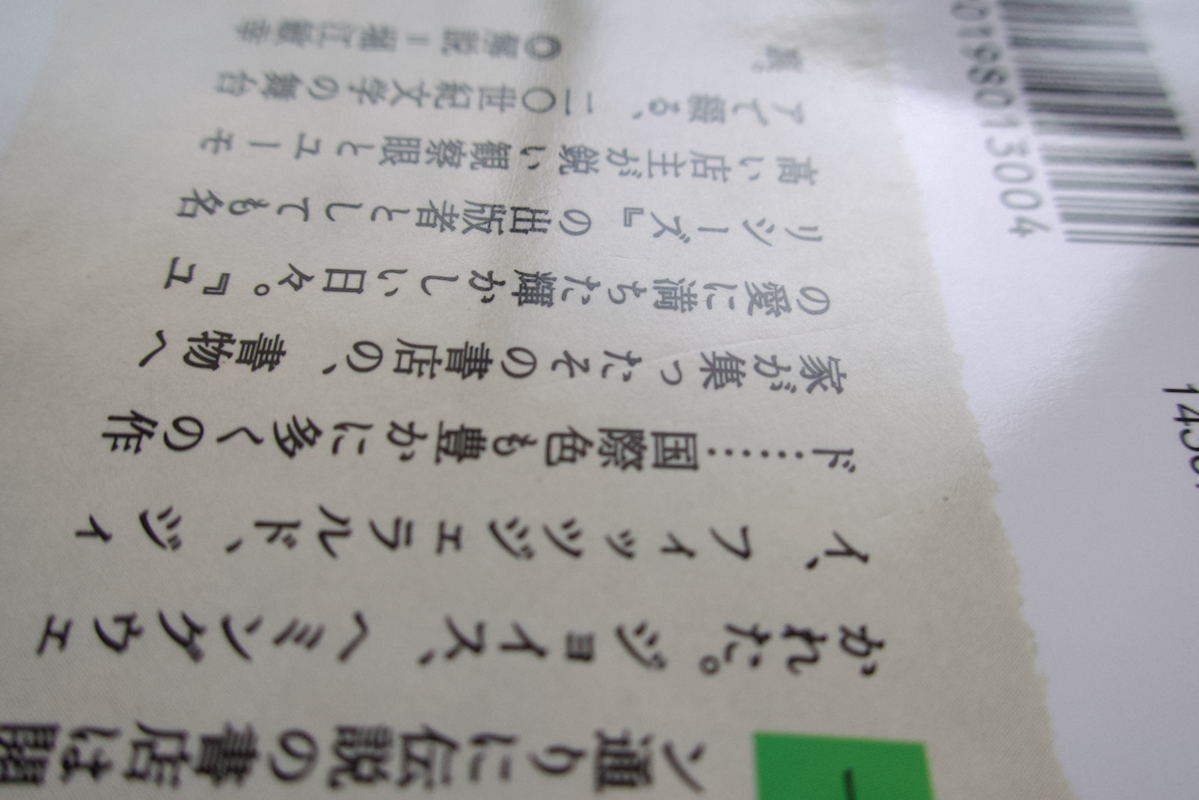 ン通りに伝説の書店は開
かれた。ジョイス、ヘミングウェ
イ、フィッツジェラルド、ジィ
ド……国際色も豊かに多くの作
家が集ったその書店の、書物へ
の愛に満ちた輝かしい日々。『ユ
リシーズ』の出版者としても名
高い店主が鋭い観察眼とユーモ
アで綴る、二〇世紀文学の舞台
裏。 ◎解説=堀江敏幸
0198013004